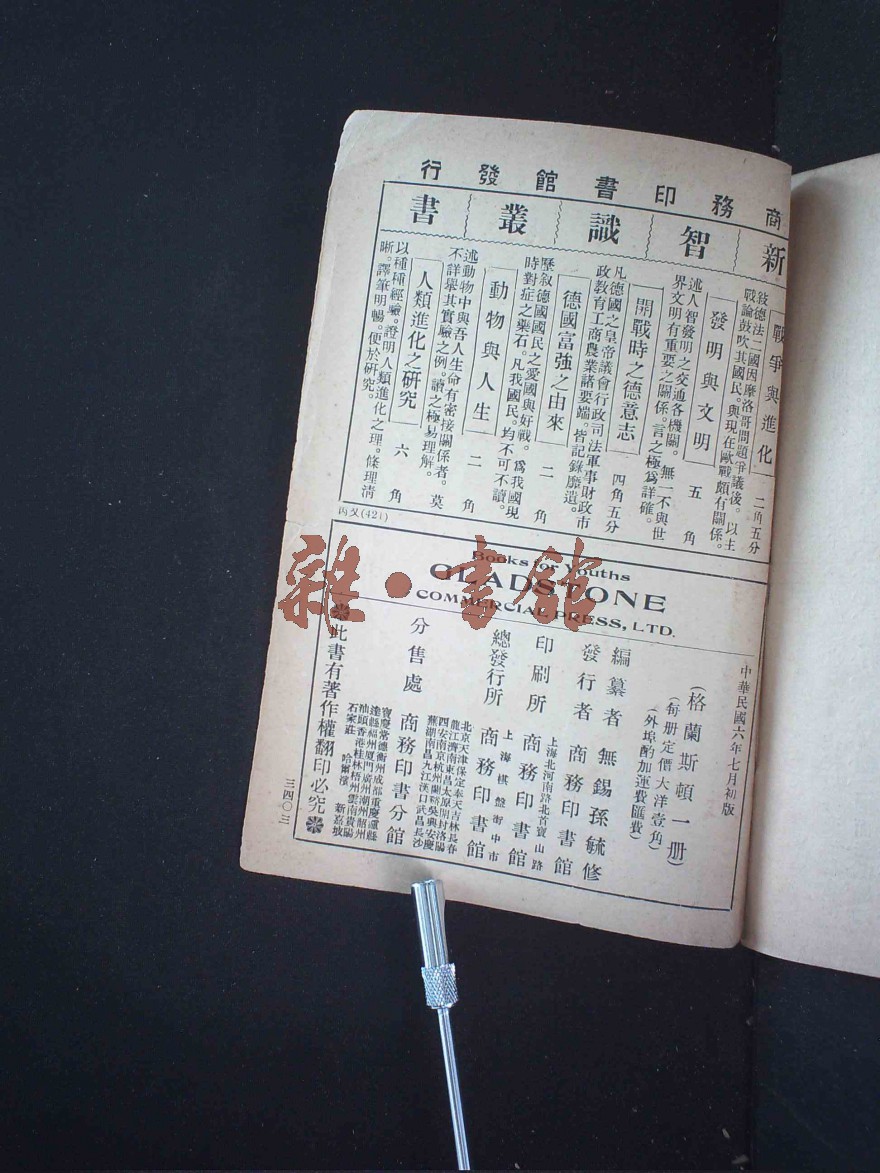 商務印書館發行
新智識叢書
戰爭與進化 二角五分
敘德法二國因摩洛哥問題爭議後。以主
戰論鼓吹其國民。與現在歐戰頗有關係。
發明與文明 五角
述人智發明之交通各機關。無一不與世
界文明有重要之關係。言之極爲詳確。
開戰時之德意志 四角五分
凡德國之皇帝議會行政司法軍事財政市
政教育工商農業諸要端。皆記錄靡遺。
德國富強之由來 二角
歷敘德國國民之愛國與好戰。爲我國現
時對症之藥石。凡我國民。均不可不讀。
動物與人生 二角
述動物中與吾人生命有密接關係者。莫
不詳舉其實驗之例。讀之極易理解。
人類進化之研究 六角
以種種經驗。證明人類進化之理。條理清
晰。譯筆明暢。便於研究。
丙(421)
Books for Youths
GLADSTONE
COMMERCIAL PRESS, LTD.
雜·書館
中華民國六年七月初版
(格蘭斯頓一册)
(每册定價大洋壹角)
(外埠酌加運費匯費)
編纂者 無錫孫毓修
發行者 商務印書館
上海北河南路北首寶山路
印刷所 商務印書館
上海棋盤街中市
總發行所 商務印書館
北京天津保定奉天吉林長春
龍江濟南東昌太原開封洛陽
西安南京杭州蘭谿吳興安慶
蕪湖南昌九江漢口武昌長沙
分售處 商務印書分館
寶慶常德衡州成都重慶瀘縣
達縣福州厦門廣州潮州韶州
汕頭香港桂林梧州雲南貴陽
石家莊 哈爾濱 新嘉坡
此書有著作權翻印必究
三四〇三